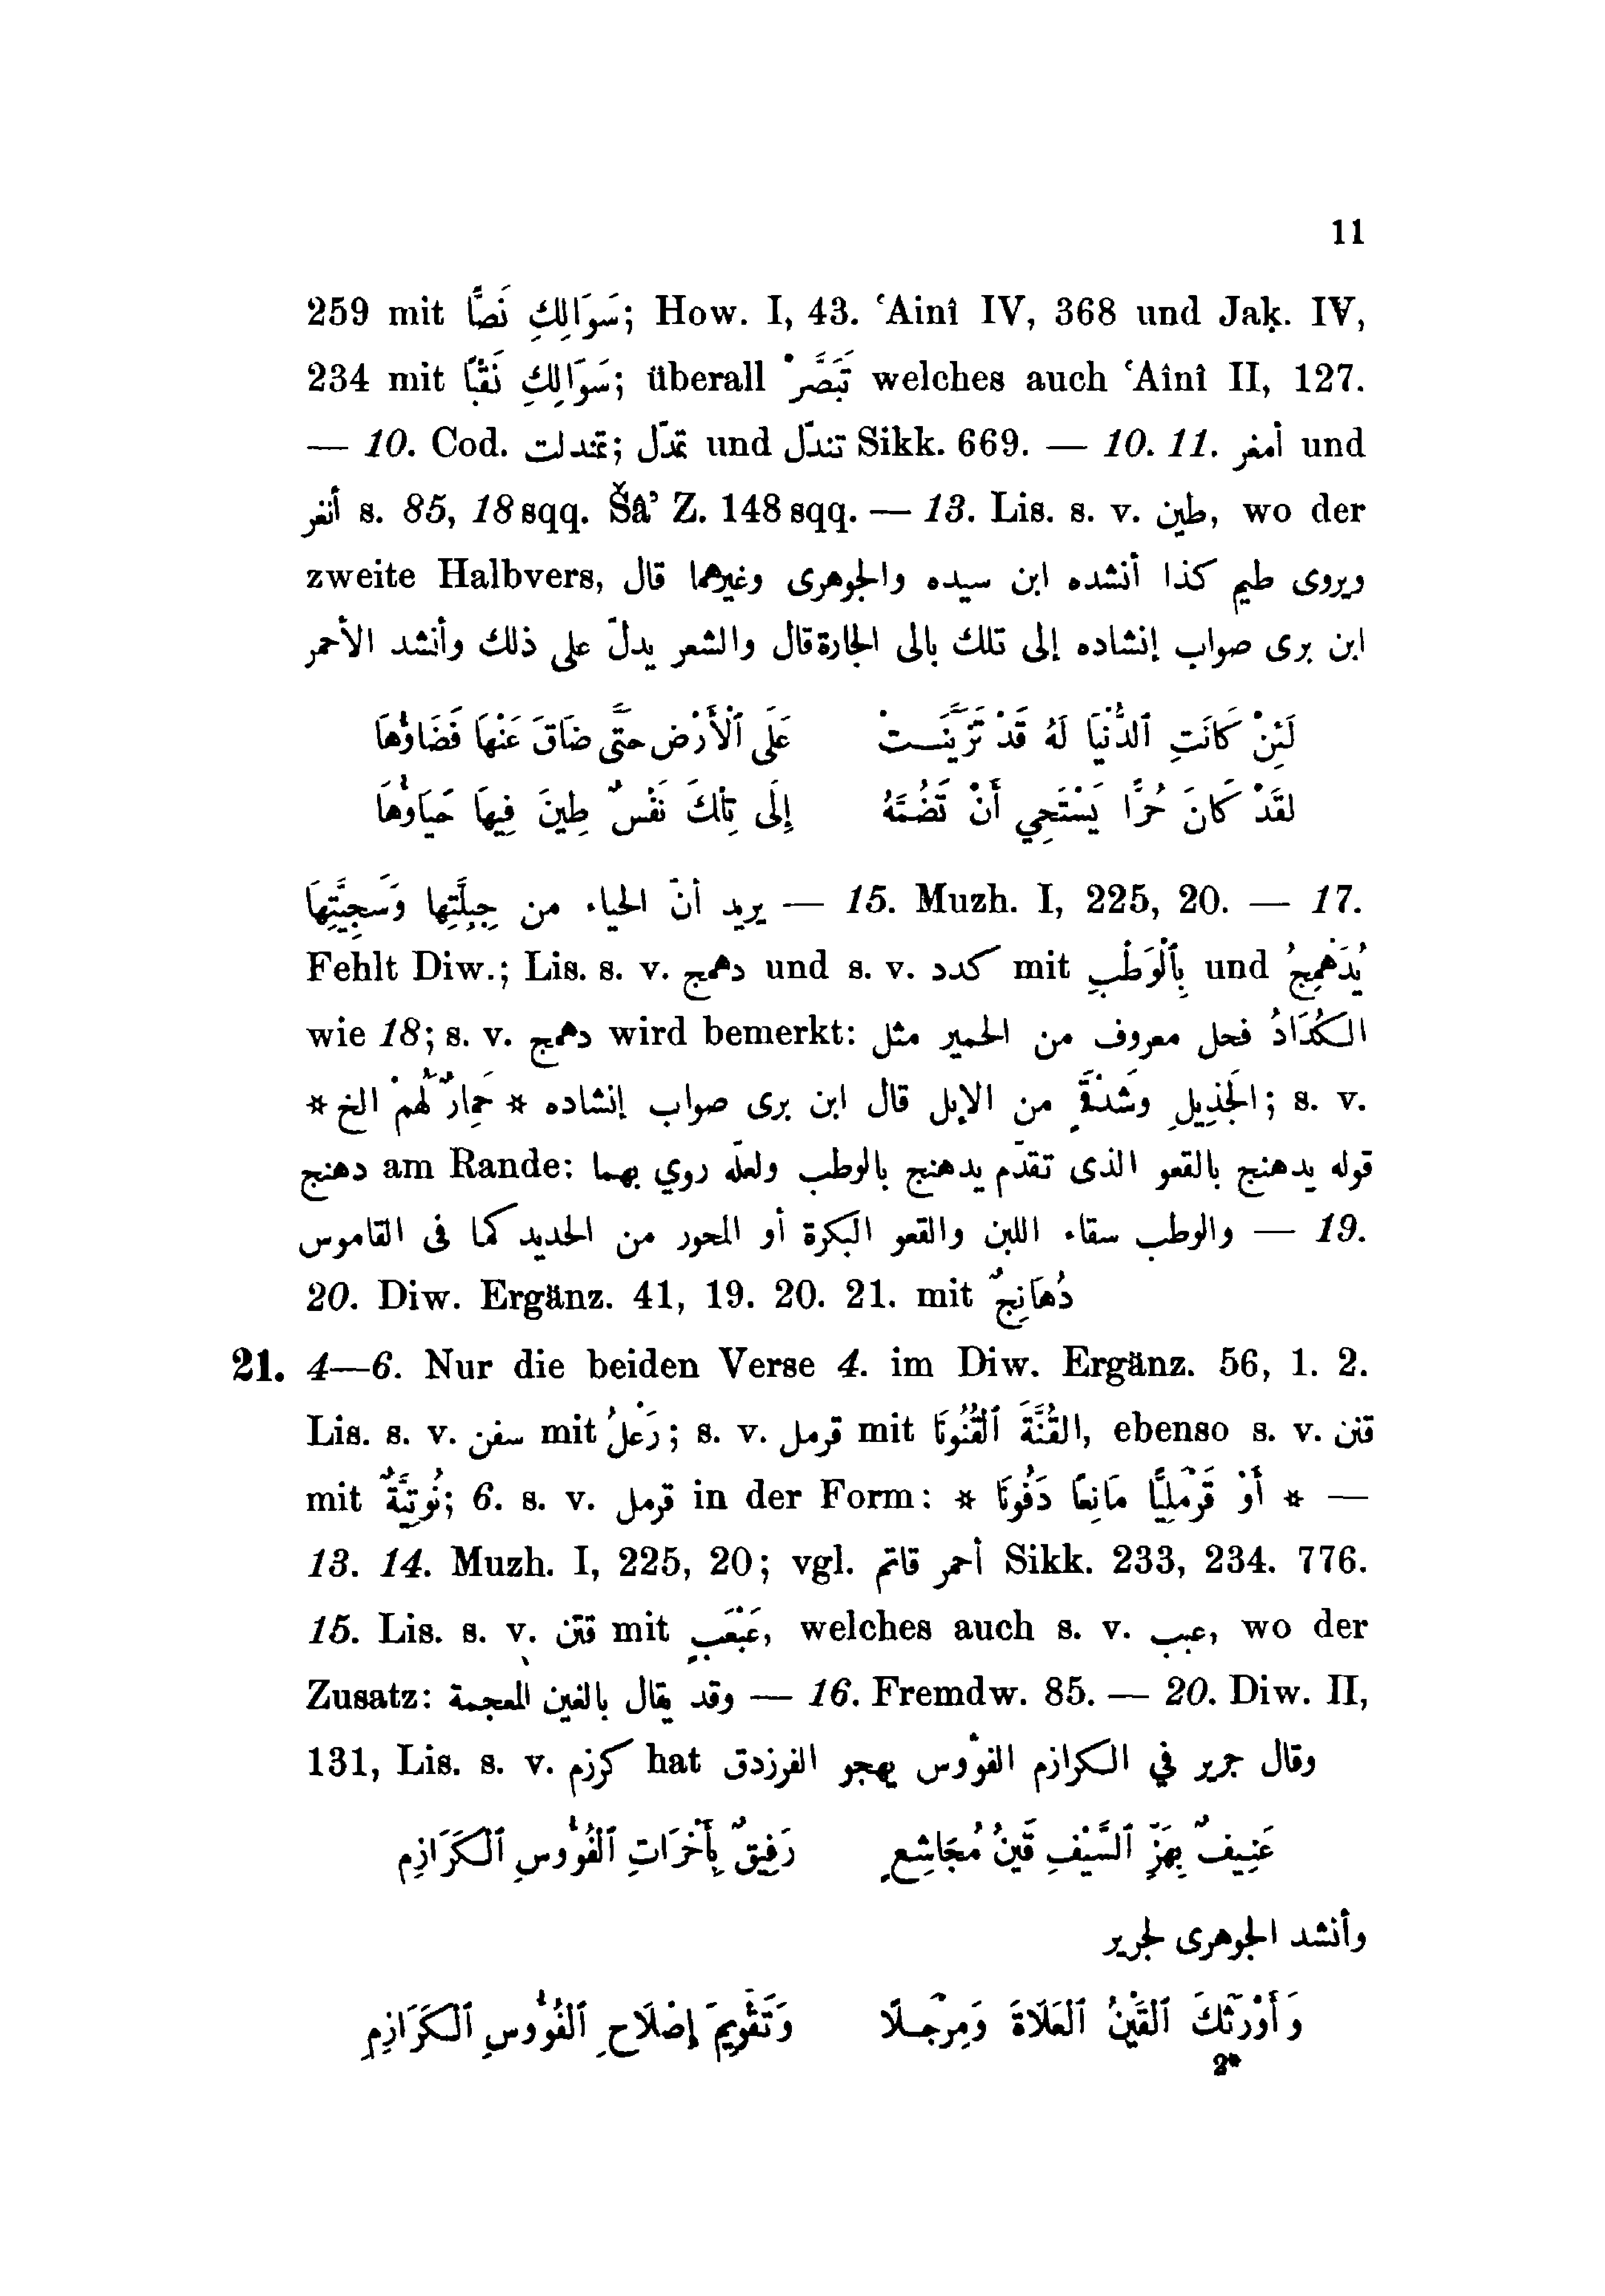 11
259 mit سَوَالِكِ نَصًّا; How. I, 43. ʿAinî IV, 368 und Jaḳ. IV,
234 mit سَوَالِكِ نَقْبًا; überall تَبَصَّرْ welches auch ʿAînî II, 127.
— 10. Cod. تمندلت; تمدّل und تندّل Sikk. 669. — 10. 11. أمغر und
أنغر s. 85, 18 sqq. Šâʾ Z. 148 sqq. — 13. Lis. s. v. طين, wo der
zweite Halbvers, ويروى طيم كذا أنشده ابن سيده والجوهرى وغيرهما قال
ابن برى صواب إنشاده إلى تلك بالى الجارة قال والشعر يدلّ على ذلك وأنشد الأحمر
لَئِنْ كَانَتِ ٱلدُّنْيَا لَهُ قَدْ تَزَيَّنَتْ عَلَى ٱلْأَرْضِ حتَّى ضَاقَ عَنْهَا فَضَاؤُهَا
لقَدْ كَانَ حُرًّا يَسْتَحِي أَنْ تَضُمَّهُ إِلَى تِلْكَ نَفْسٌ طِينَ فِيهَا حَيَاؤُهَا
يريد أنّ الحياء من جِبِلَّتِها وَسَجِيَّتِهَا — 15. Muzh. I, 225, 20. — 17.
Fehlt Diw.; Lis. s. v. دهمج und s. v. كدد mit بِٱلْوَطْبِ und يُدَهْمِجُ
wie 18; s. v. دهمج wird bemerkt: الكُدَادُ فحل معروف من الحمير مثل
الجَذِيلِ وشَدْقَمٍ من الإبل قال ابن برى صواب إنشاده * حِمارٌ لَهُمْ الخ *; s. v.
دهنج am Rande: قوله يدهنج بالقعو الذى تقدّم يدهنج بالوطب ولعلّه روي بهما
والوطب سقاء اللبن والقعو البكرة أو المحور من الحديد كما فى القاموس — 19.
20. Diw. Ergänz. 41, 19. 20. 21. mit دُهَانِجٌ
21. 4—6. Nur die beiden Verse 4. im Diw. Ergänz. 56, 1. 2.
Lis. s. v. سفن mit رَعْلُ; s. v. قرمل mit القُنَّةَ ٱلْقُنُونَا, ebenso s. v. قنن
mit نُوتِيَّةٌ; 6. s. v. قرمل in der Form: * أَوْ قَرْمَلِيًّا مَانِعًا دَفُونَا * —
13. 14. Muzh. I, 225, 20; vgl. أحمر قاتم Sikk. 233, 234. 776.
15. Lis. s. v. قنن mit عَبْعَبٍ, welches auch s. v. عبب, wo der
Zusatz: وقد يقال بالغين المعجمة — 16. Fremdw. 85. — 20. Diw. II,
131, Lis. s. v. كرزم hat وقال جرير في الكرازم الفؤوس يهجو الفرزدق
عَنِيفٌ بِهَزِّ ٱلسَّيْفِ قَيْنُ مُجَاشِعٍ رَفِيقٌ بِأَخْرَاتِ ٱلْفُؤُوسِ ٱلْكَرَازِمِ
وأنشد الجوهرى لجرير
وَأَوْرَثَكَ ٱلْقَيْنُ ٱلْعَلَاةَ وَمِرْجَلًا وَتَقْوِيمَ إِصْلَاحِ ٱلْفُؤُوسِ ٱلْكَرَازِمِ
2*